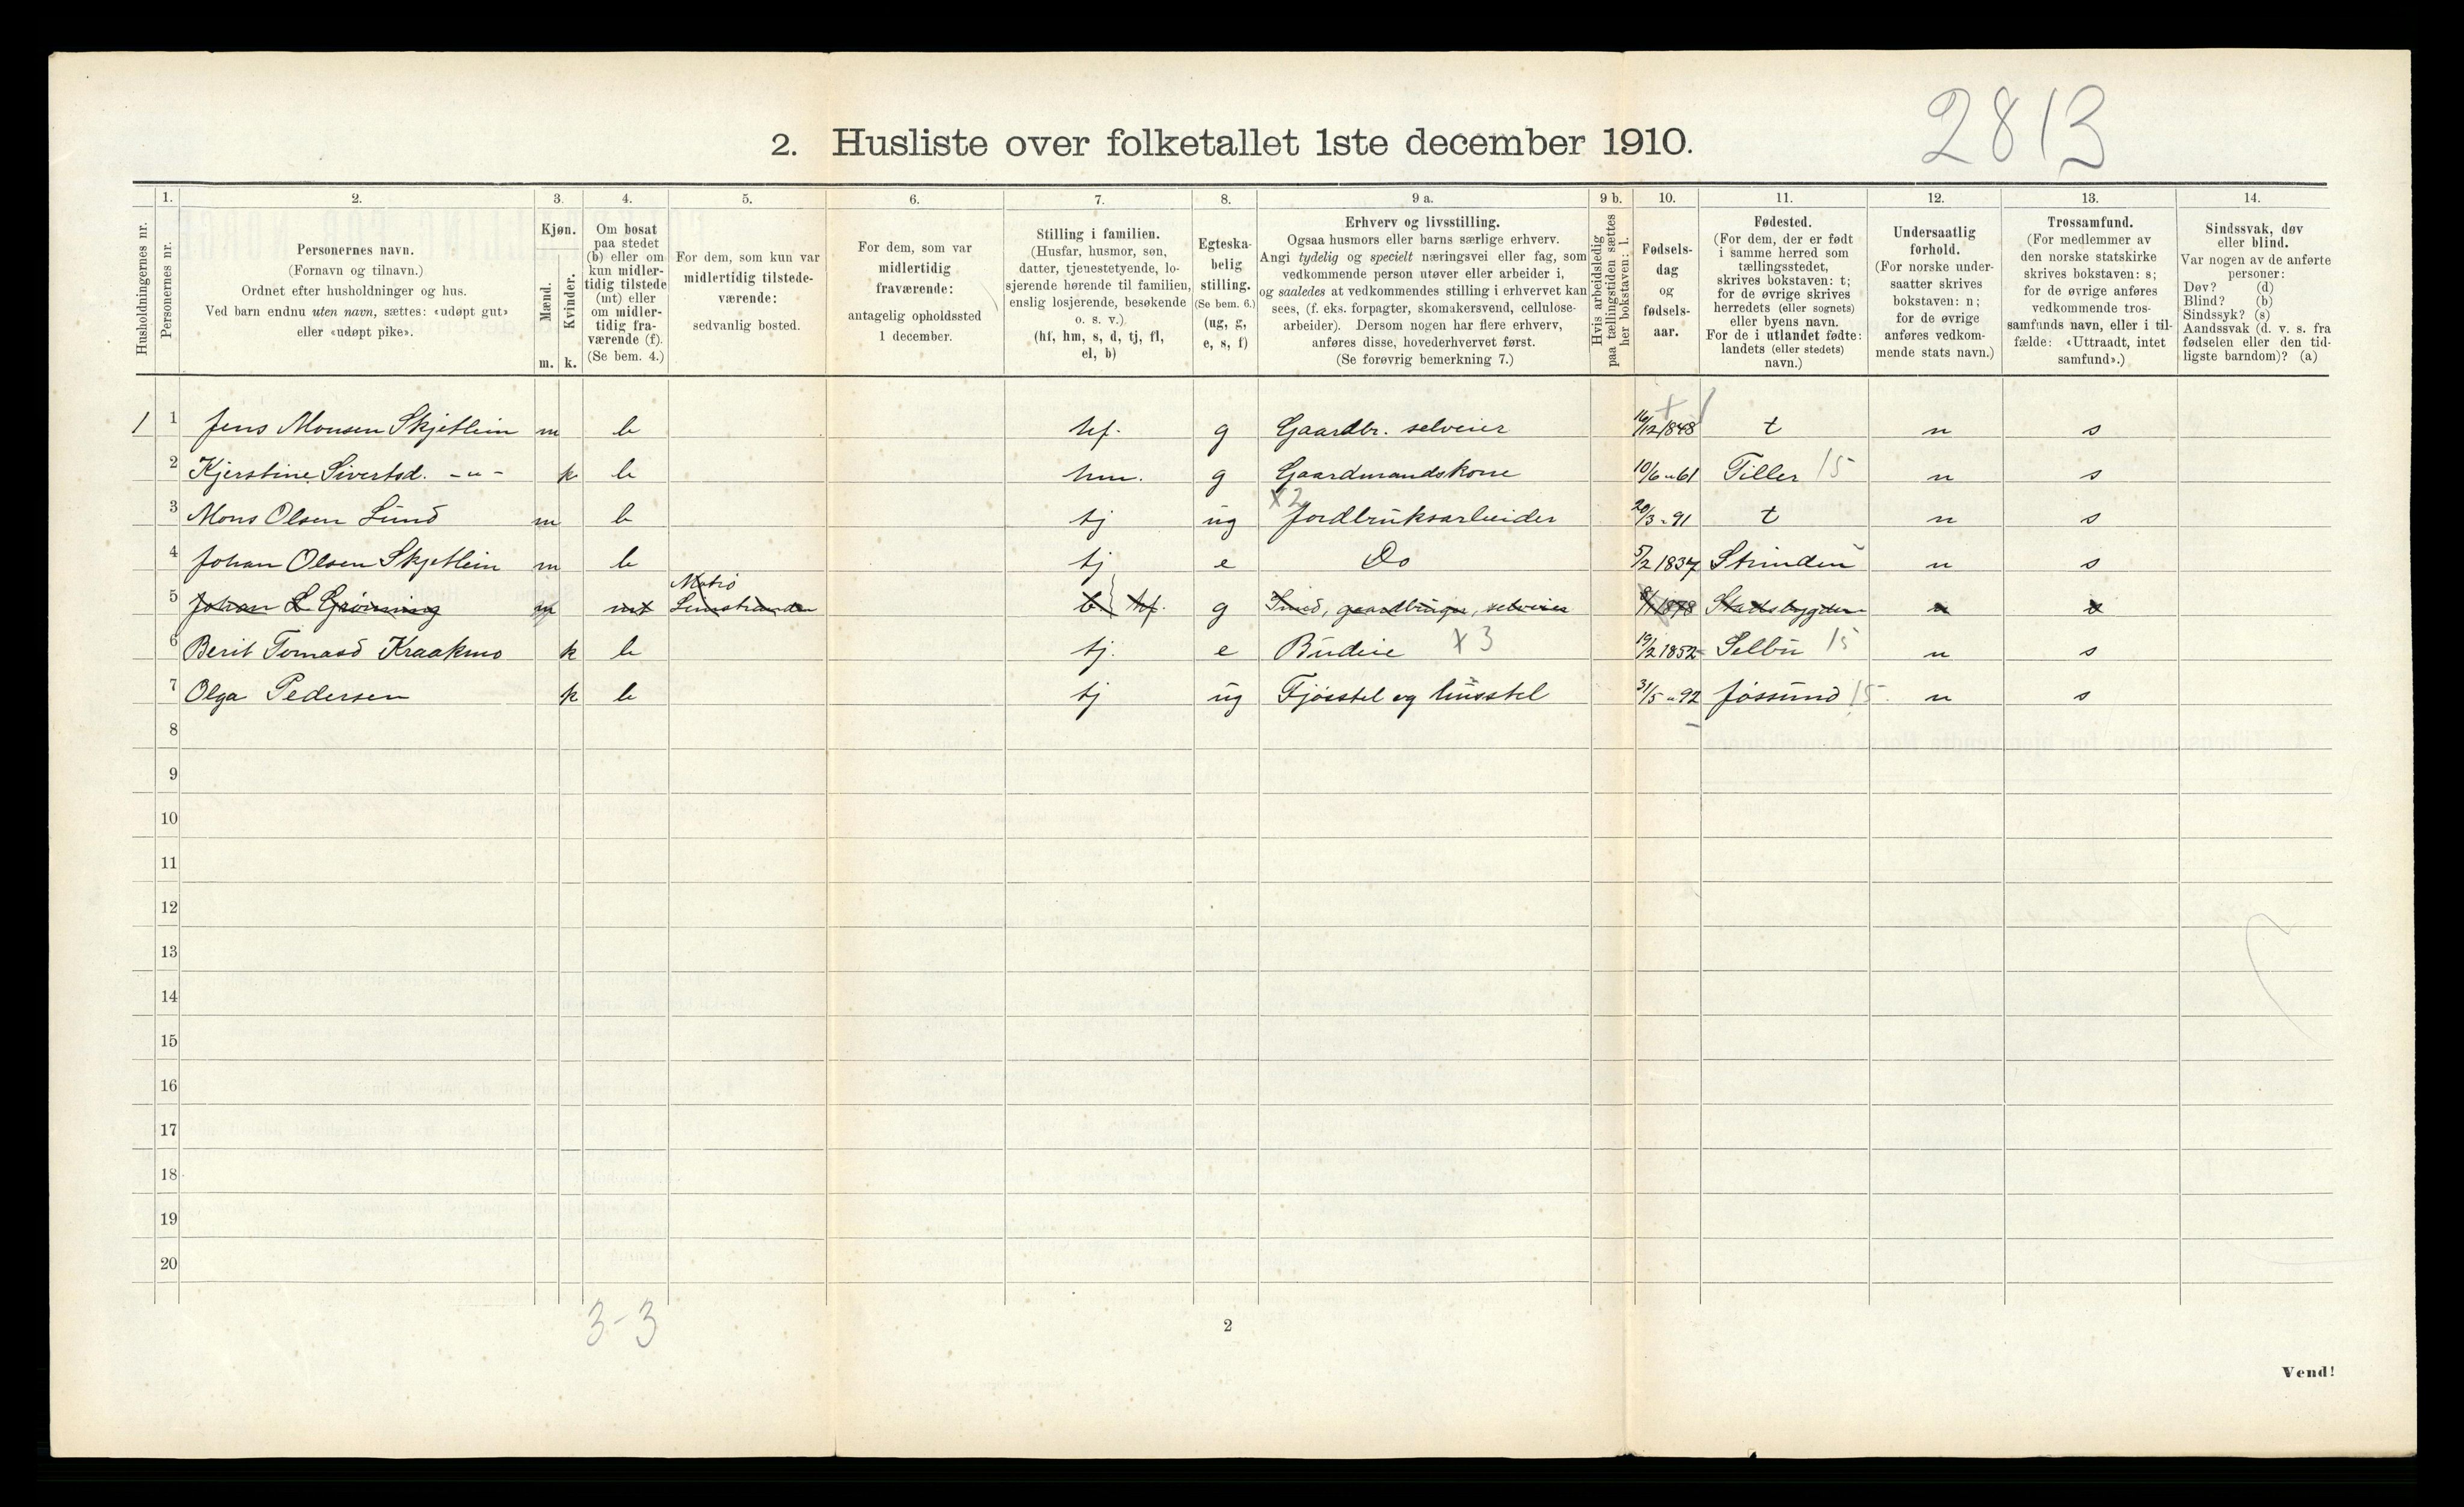 2813
2. Husliste over folketallet 1ste december 1910.
Husholdningernes nr.
1. Personernes nr.
2. Personernes navn. (Fornavn og tilnavn.) Ordnet efter husholdninger og hus. Ved barn endnu uten navn, sættes: «udøpt gut» eller «udøpt pike».
3. Kjøn. Mænd. m. Kvinder. k.
4. Om bosat paa stedet (b) eller om kun midlertidig tilstede (mt) eller om midlertidig fraværende (f). (Se bem. 4.)
5. For dem, som kun var midlertidig tilstedeværende: sedvanlig bosted.
6. For dem, som var midlertidig fraværende: antagelig opholdssted 1 december.
7. Stilling i familien. (Husfar, husmor, søn, datter, tjenestetyende, losjerende hørende til familien, enslig losjerende, besøkende o. s. v.) (hf, hm, s, d, tj, fl, el, b)
8. Egteskabelig stilling. (Se bem. 6.) (ug, g, e, s, f)
9 a. Erhverv og livsstilling. Ogsaa husmors eller barns særlige erhverv. Angi tydelig og specielt næringsvei eller fag, som vedkommende person utøver eller arbeider i, og saaledes at vedkommendes stilling i erhvervet kan sees, (f. eks. forpagter, skomakersvend, cellulosearbeider). Dersom nogen har flere erhverv, anføres disse, hovederhvervet først. (Se forøvrig bemerkning 7.)
9 b. Hvis arbeidsledig paa tællingstiden sættes her bokstaven: l.
10. Fødselsdag og fødselsaar.
11. Fødested. (For dem, der er født i samme herred som tællingsstedet, skrives bokstaven: t; for de øvrige skrives herredets (eller sognets) eller byens navn. For de i utlandet fødte: landets (eller stedets) navn.)
12. Undersaatlig forhold. (For norske undersaatter skrives bokstaven: n; for de øvrige anføres vedkommende stats navn.)
13. Trossamfund. (For medlemmer av den norske statskirke skrives bokstaven: s; for de øvrige anføres vedkommende trossamfunds navn, eller i tilfælde: «Uttraadt, intet samfund».)
14. Sindssvak, døv eller blind. Var nogen av de anførte personer: Døv? (d) Blind? (b) Sindssyk? (s) Aandssvak (d. v. s. fra fødselen eller den tidligste barndom)? (a)
1 1 Jens Monsen Skjetlein m b hf. g Gaardbr. selveier 16/12 1848 t n s
2 Kjerstine Sivertsd. -"- k b hm. g Gaardmandskone 10/6 "61 Tiller 15 n s
3 Mons Olsen Lund m b tj ug x2 Jordbruksarbeider 20/3 "91 t n s
4 Johan Olsen Skjetlein m b tj e Do 5/2 1837 Strinden n s
5 Johan L Grønning m mt Leinstranden b hf. g Smed, gaardbruger, selveier 8/1 1878 Stadsbygden n s
6 Berit Tomasd Kraakmo k b tj. e Budeie x3 19/2 1852 Selbu 15 n s
7 Olga Pedersen k b tj ug Fjøsstel og husstel 31/5 "92 Jøssund 15 n s
8
9
10
11
12
13
14
15
16
17
18
19
20
3-3
2
Vend!